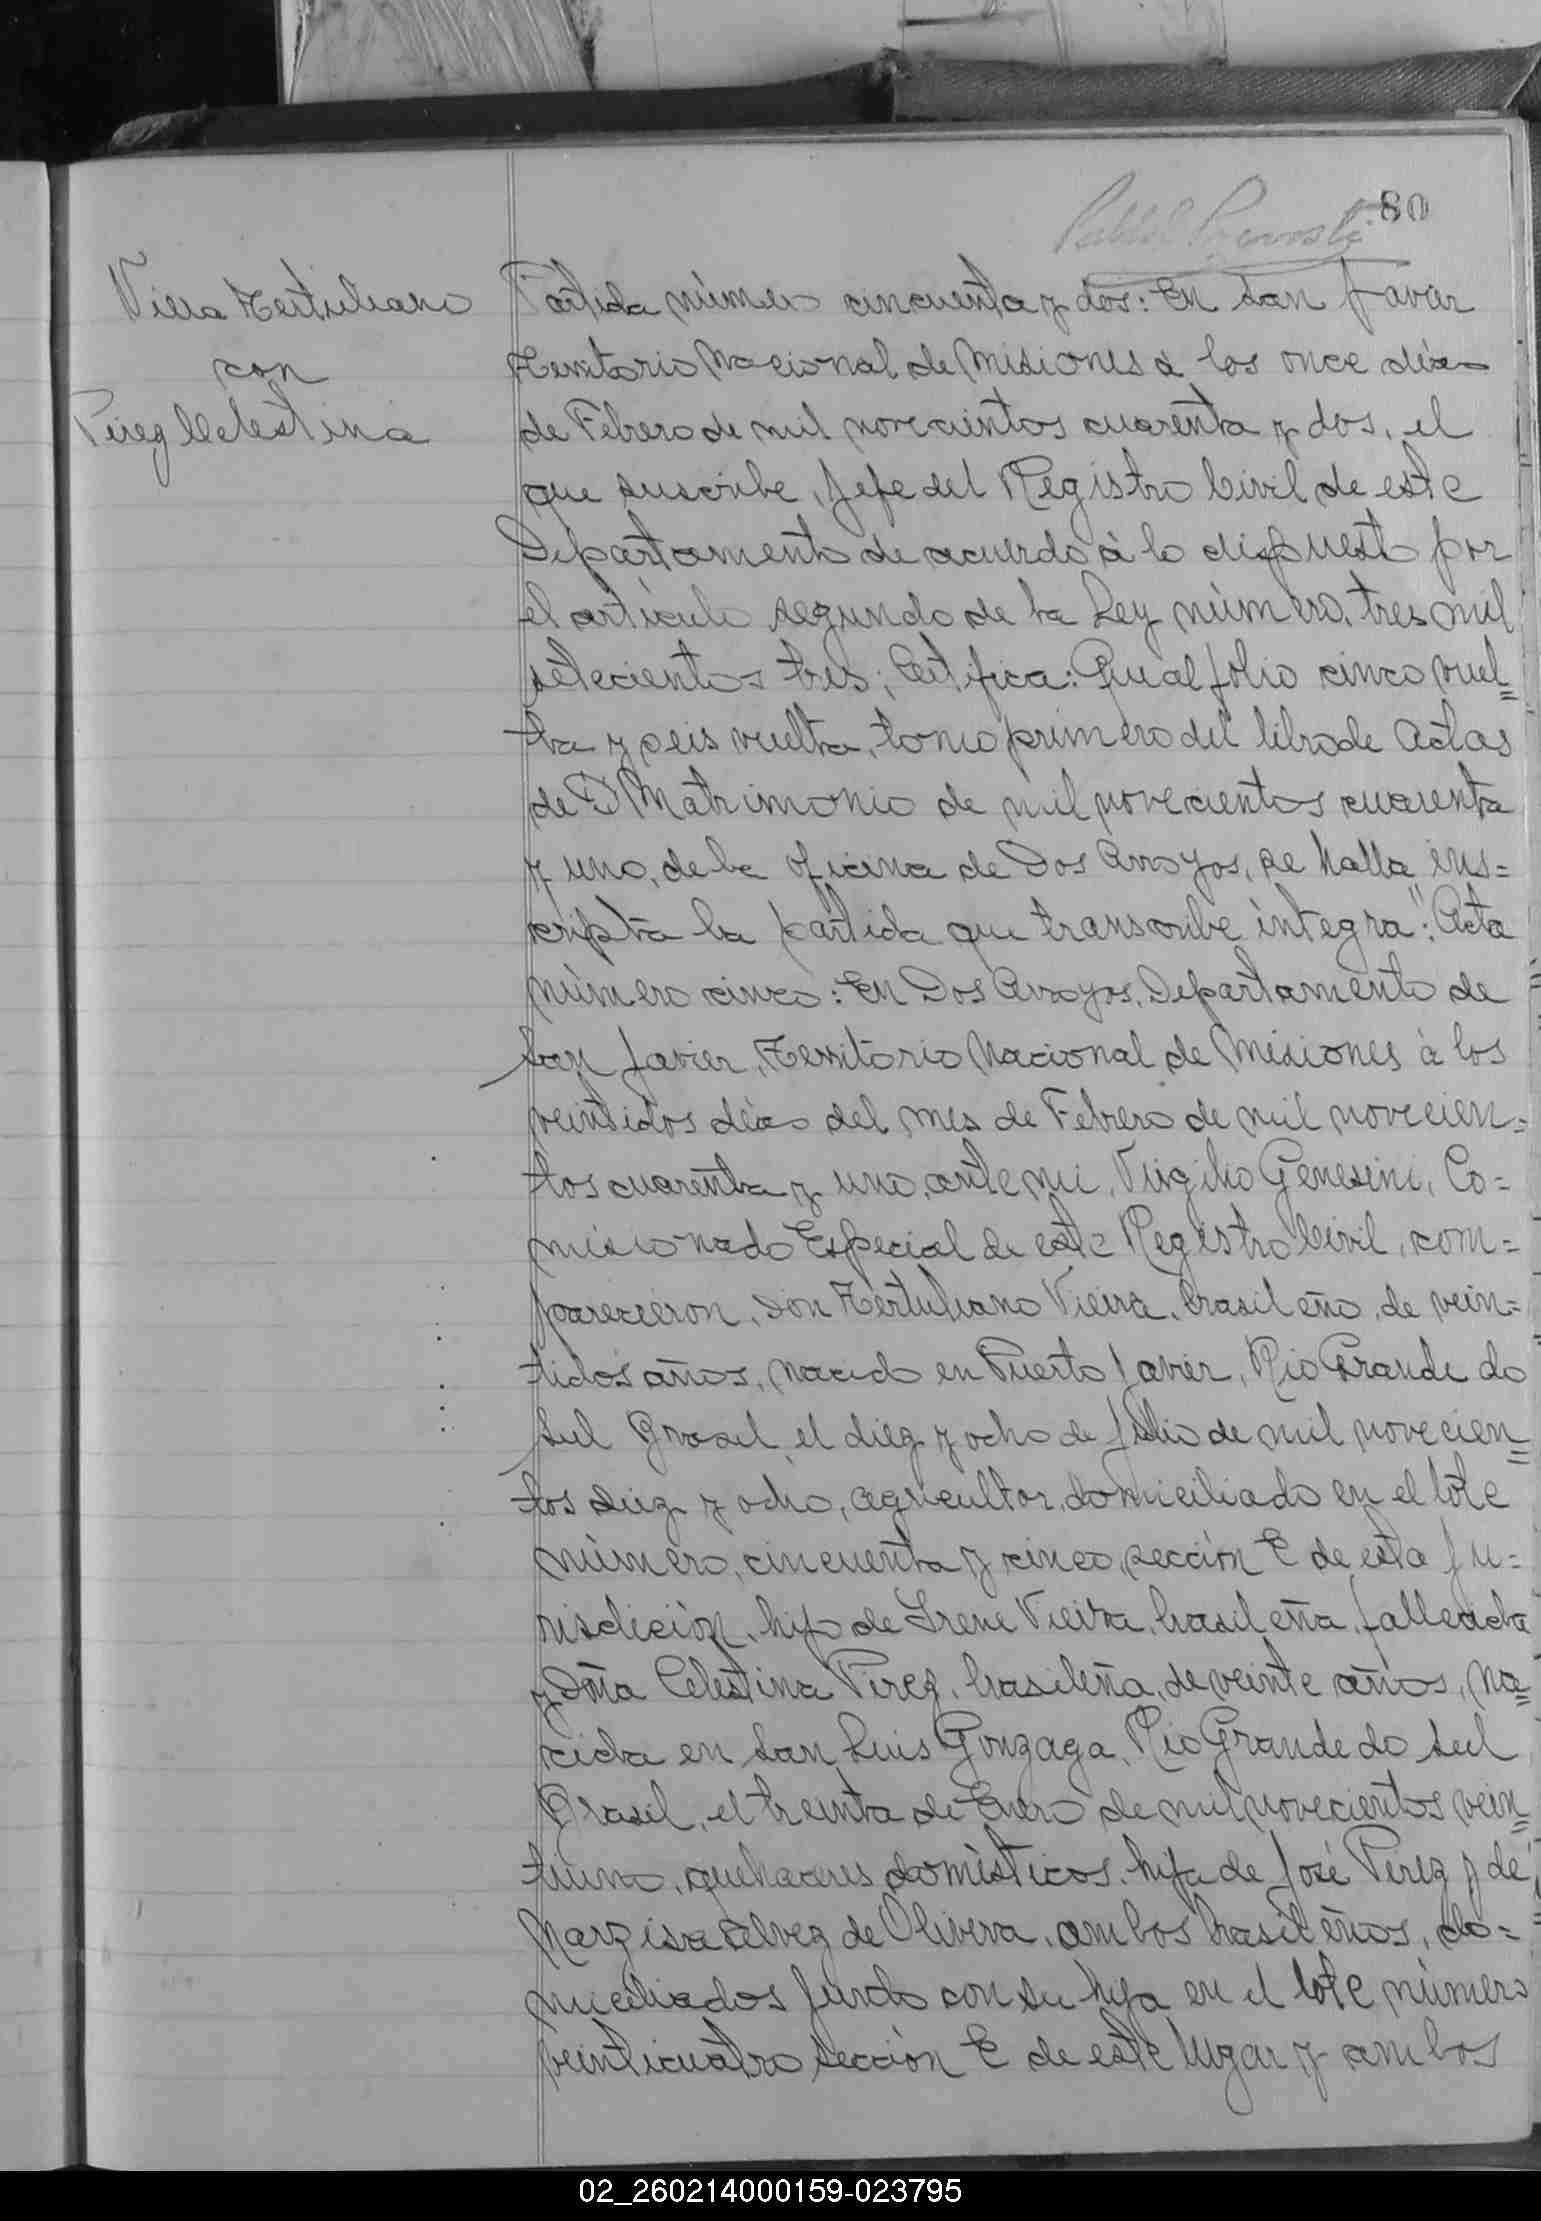 80
Viera Tertuliano
con
Pérez Celestina
Partida número cincuenta y dos: En San Javier
Territorio Nacional de Misiones á los once días
de Febrero de mil novecientos cuarenta y dos, el
que suscribe, Jefe del Registro Civil de este
Departamento de acuerdo á lo dispuesto por
el artículo segundo de la Ley número, tres mil
setecientos tres; Certifica: Que al folio cinco vuel=
ta y seis vuelta, tomo primero del libro de Actas
de Matrimonio de mil novecientos cuarenta
y uno, de la oficina de Dos Arroyos, se halla ins=
cripta la partida que transcribe íntegra": Acta
número cinco: En Dos Arroyos, Departamento de
San Javier, Territorio Nacional de Misiones á los
veintidos días del mes de Febrero de mil novecien=
tos cuarenta y uno, ante mi, Virgilio Genesini, Co=
misionado Especial de este Registro Civil, com=
parecieron, Don Tertuliano Vieira, brasileño, de vein=
tidós años, nacido en Puerto Javier, Rio Grande do
Sul Brasil el diez y ocho de Julio de mil novecien=
tos diez y ocho, agricultor, domiciliado en el lote
número, cincuenta y cinco, sección E de esta ju=
risdicción, hijo de Irene Vieira, brasileña, fallecida
y Doña Celestina Pérez, brasileña, de veinte años, na=
cida en San Luis Gonzaga, Rio Grande do Sul
Brasil, el treinta de Enero de mil novecientos vein=
tiuno, quehaceres domésticos, hija de José Pérez y de
Narzisa Alvez de Olivera, ambos brasileños, do=
miciliados junto con su hija en el lote número
veinticuatro sección E de este lugar y ambos
02_260214000159-023795